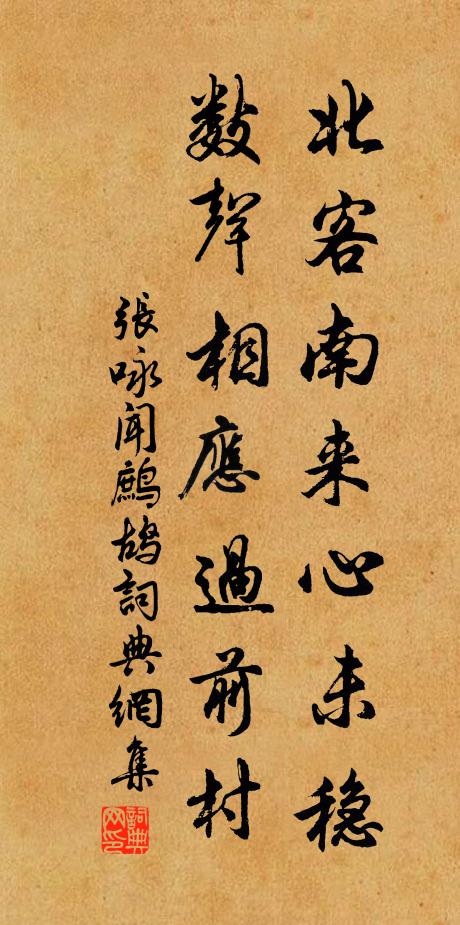 北客南来心未稳
数聲相應過前村
張咏闻鷓鸪詞典網集
詞典网印